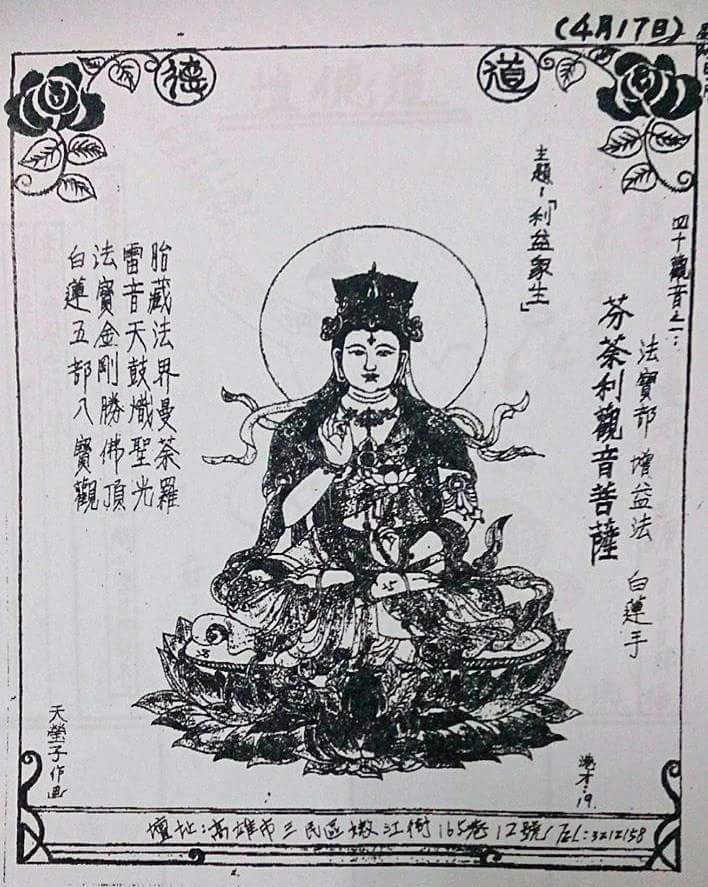 (4月17日)
道德
四十觀音之一：
法寶部 增益法 白蓮手
芬荼利觀音菩薩
主題：「利益眾生」
胎藏法界曼荼羅
雷音天鼓熾聖光
法寶金剛勝佛頂
白蓮五部八寶觀
天瑩子作画
壇址：高雄市三民區嫩江街165巷12號／TEL：3212158